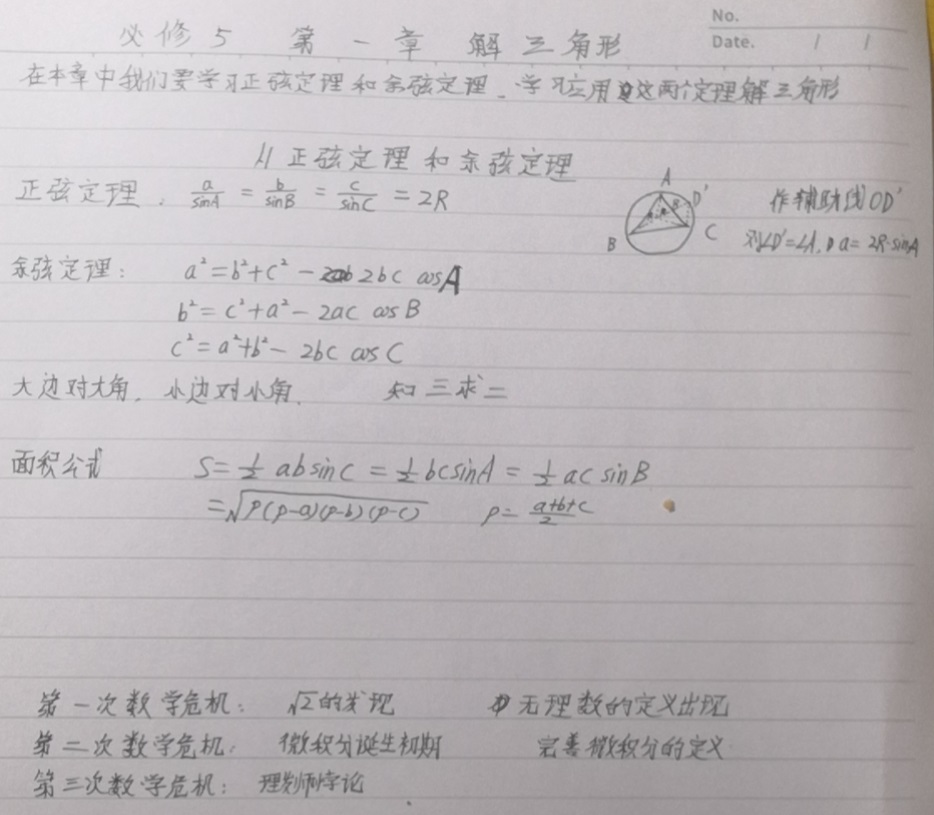 No.
Date. / /
必修5 第一章 解三角形
在本章中我们要学习正弦定理和余弦定理,学习应用这两个定理解三角形
1.1 正弦定理和余弦定理
正弦定理: a/sinA = b/sinB = c/sinC = 2R
A D' B C
作辅助线OD'
则∠D'=∠A, a=2R·sinA
余弦定理: a²=b²+c²-2bc cosA
b²=c²+a²-2ac cosB
c²=a²+b²-2bc cosC
大边对大角,小边对小角. 知三求二
面积公式 S=½absinC=½bcsinA=½acsinB
=√p(p-a)(p-b)(p-c) p=(a+b+c)/2
第一次数学危机: √2的发现 无理数的定义出现
第二次数学危机: 微积分诞生初期 完善微积分的定义
第三次数学危机: 理发师悖论